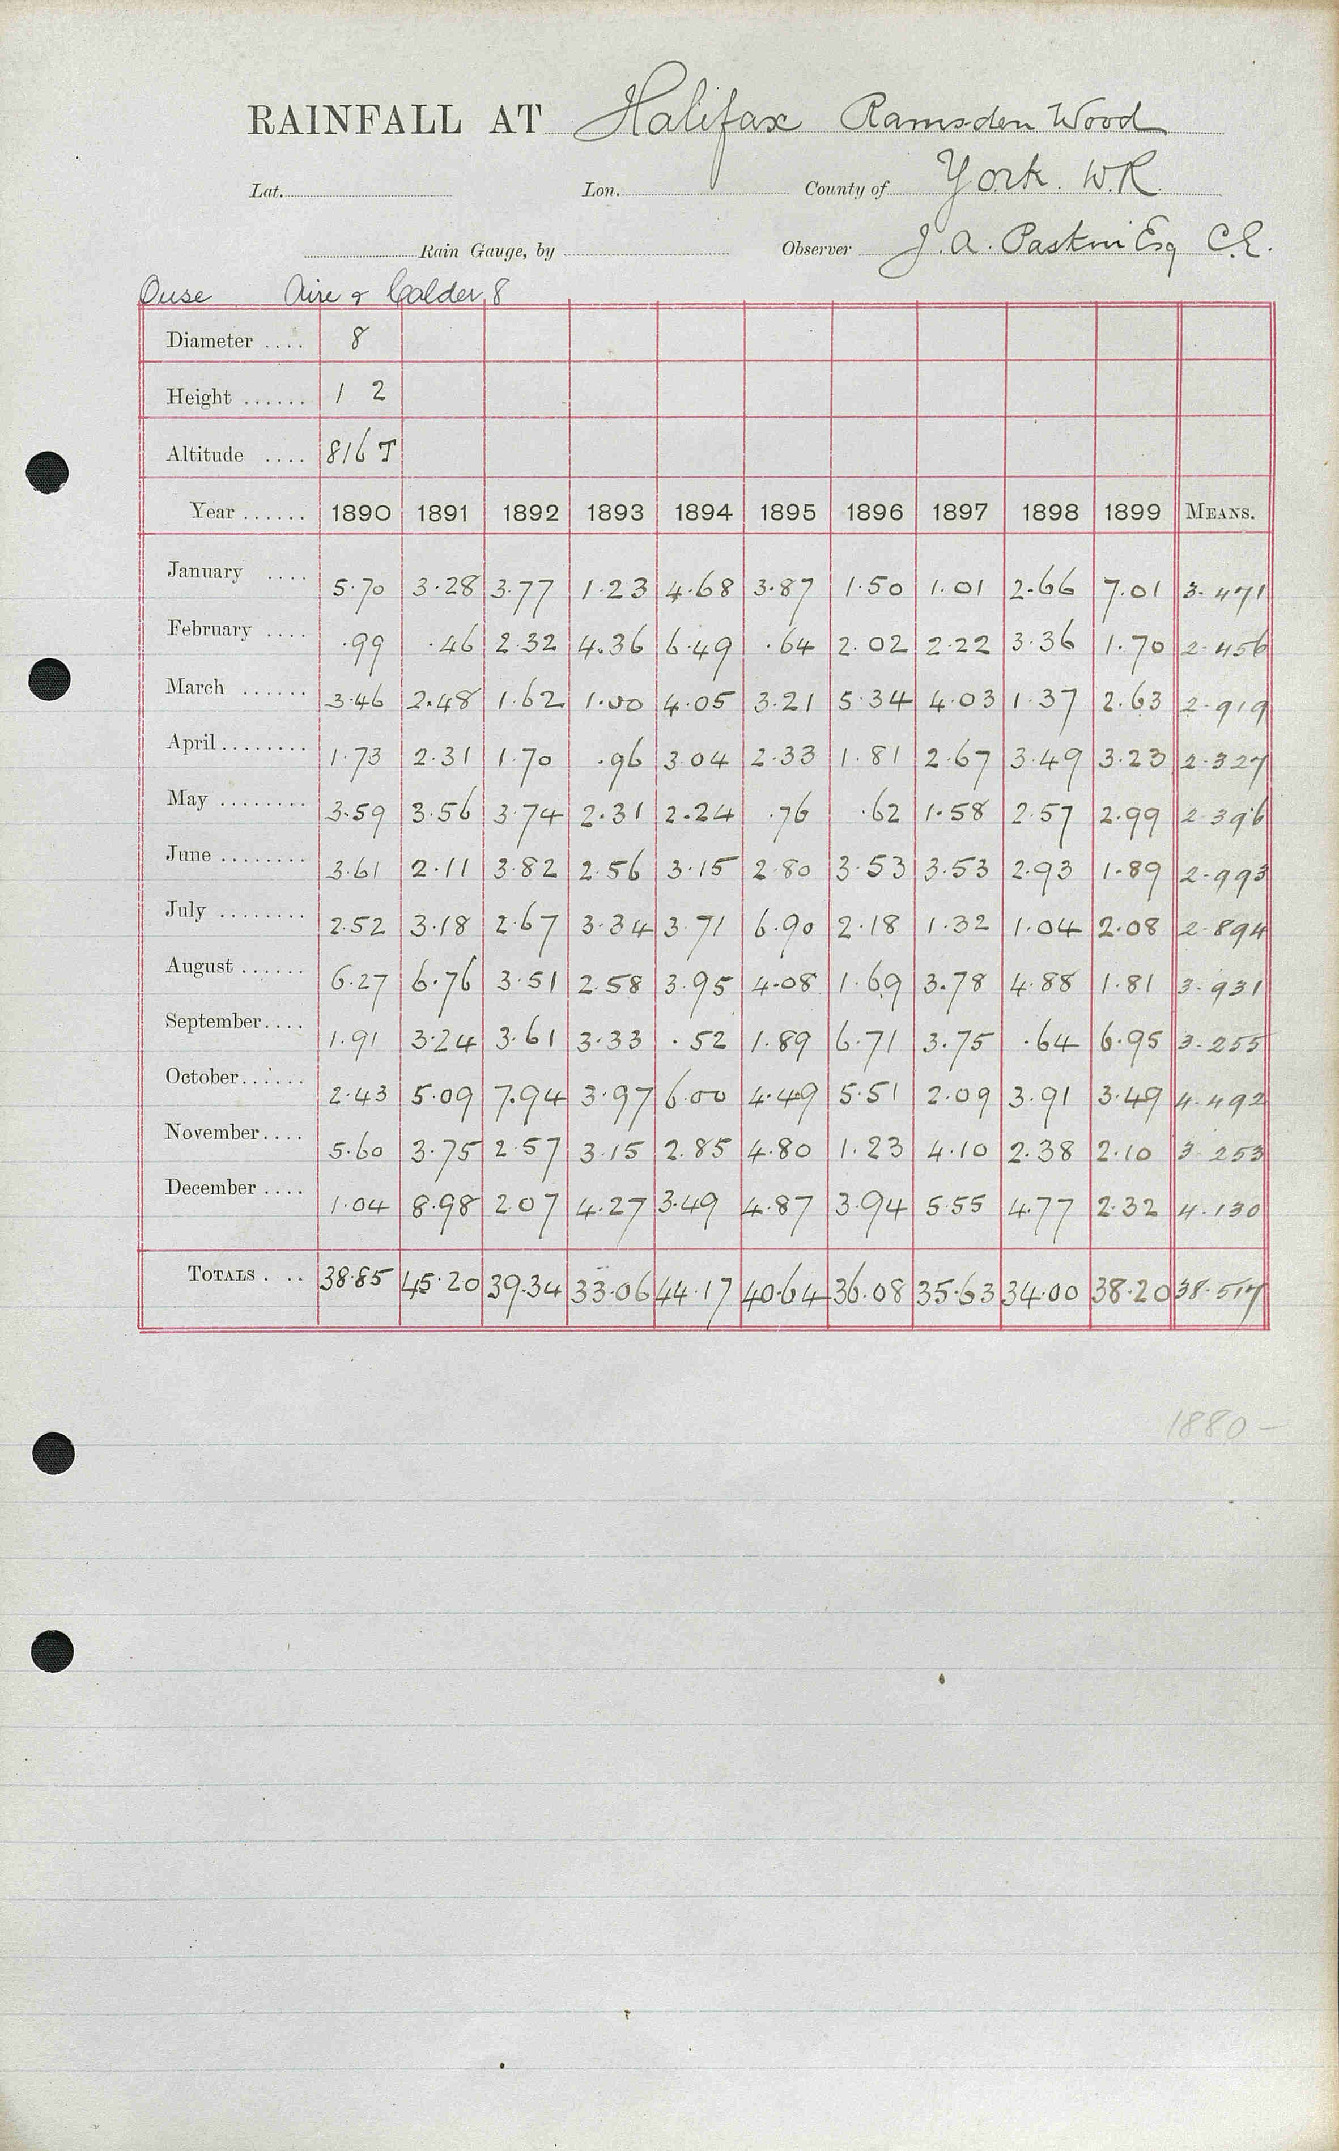 RAINFALL AT Halifax Ramsden Wood
Lat. Lon. County of York. W.R.
Rain Gauge, by Observer J. A. Paskin Esq C.E.
Ouse Aire & Calder, 8
Diameter .... 8
Height ...... 1 2
Altitude .... 816 T
Year ...... 1890 1891 1892 1893 1894 1895 1896 1897 1898 1899 MEANS.
January .... 5.70 3.28 3.77 1.23 4.68 3.87 1.50 1.01 2.66 7.01 3.471
February .... .99 .46 2.32 4.36 6.49 .64 2.02 2.22 3.36 1.70 2.456
March ...... 3.46 2.48 1.62 1.00 4.05 3.21 5.34 4.03 1.37 2.63 2.919
April ........ 1.73 2.31 1.70 .96 3.04 2.33 1.81 2.67 3.49 3.23 2.327
May ........ 3.59 3.56 3.74 2.31 2.24 .76 .62 1.58 2.57 2.99 2.396
June ........ 3.61 2.11 3.82 2.56 3.15 2.80 3.53 3.53 2.93 1.89 2.993
July ........ 2.52 3.18 2.67 3.34 3.71 6.90 2.18 1.32 1.04 2.08 2.894
August ...... 6.27 6.76 3.51 2.58 3.95 4.08 1.69 3.78 4.88 1.81 3.931
September .... 1.91 3.24 3.61 3.33 .52 1.89 6.71 3.75 .64 6.95 3.255
October ...... 2.43 5.09 7.94 3.97 6.00 4.49 5.51 2.09 3.91 3.49 4.492
November .... 5.60 3.75 2.57 3.15 2.85 4.80 1.23 4.10 2.38 2.10 3.253
December .... 1.04 8.98 2.07 4.27 3.49 4.87 3.94 5.55 4.77 2.32 4.130
TOTALS . .. 38.85 45.20 39.34 33.06 44.17 40.64 36.08 35.63 34.00 38.20 38.517
1880 -